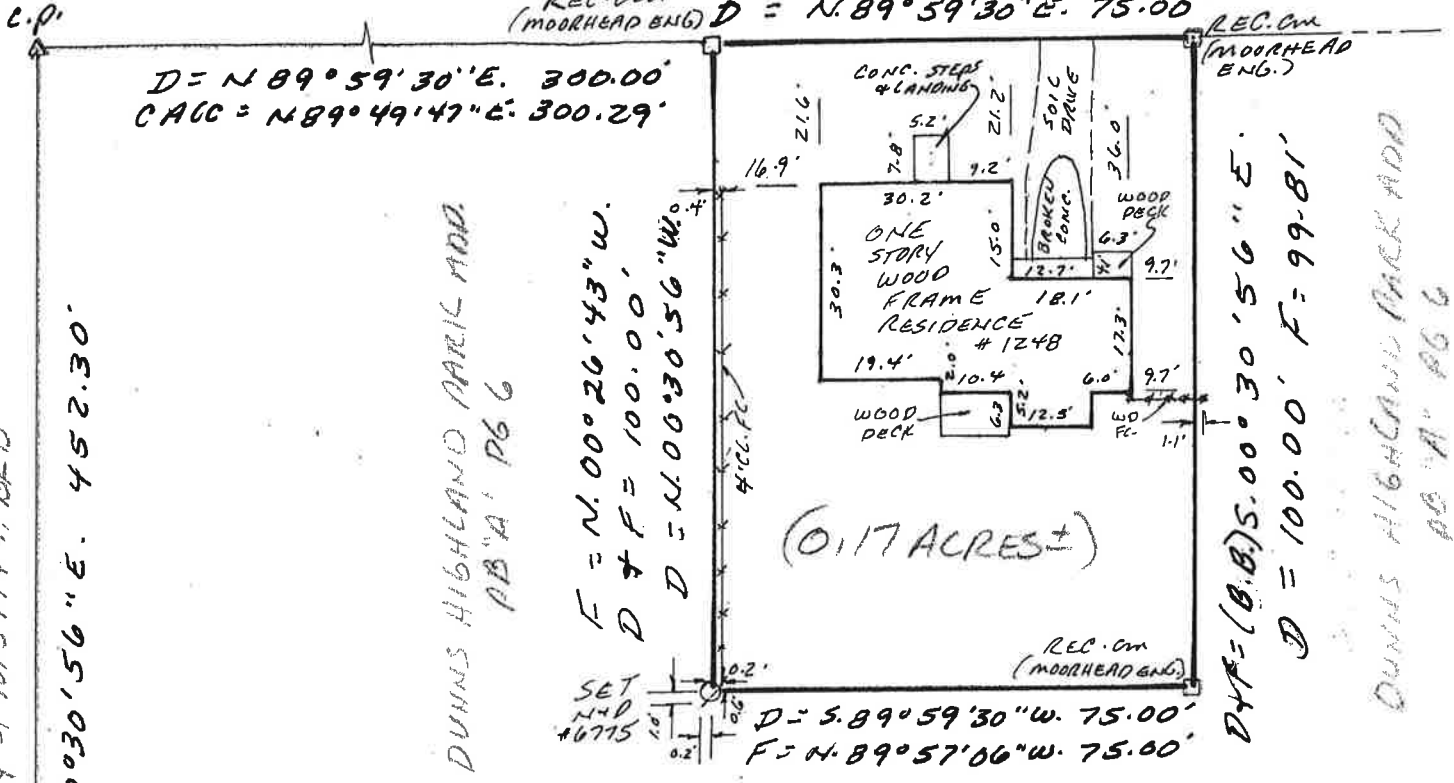 C.P.
(MOORHEAD ENG)
D = N.89°59'30"E. 75.00'
REC. CM
(MOORHEAD
ENG.)
D = N 89°59'30"E. 300.00'
CALC = N.89°49'47"E. 300.29'
CONC. STEPS
& LANDING
SOIL
DRIVE
21.6'
5.2'
21.2'
7.8'
36.0'
16.9'
9.2'
0.4'
30.2'
BROKEN
CONC.
WOOD
DECK
6.3'
ONE
STORY
WOOD
FRAME
RESIDENCE
# 1248
15.0'
30.3'
12.7'
9.7'
18.1'
17.3'
19.4'
2.0'
10.4
6.0'
9.7'
WOOD
DECK
6.3
5.2'
12.5'
WD
FC.
1.1'
4' C.L. FC.
F = N.00°26'43"W.
D & F = 100.00'
D = N.00°30'56"W.
DUNNS HIGHLAND PARK ADD.
PB "A" PG 6
°30'56"E. 452.30'
(0.17 ACRES±)
D&F=(B.B.)S.00°30'56"E.
D = 100.00' F = 99.81'
DUNNS HIGHLAND PARK ADD
PB "A" PG 6
REC. CM
(MOORHEAD ENG.)
SET
N&D
#6775
0.2'
1.0'
0.6'
0.2'
D = S.89°59'30"W. 75.00'
F = N.89°57'06"W. 75.00'